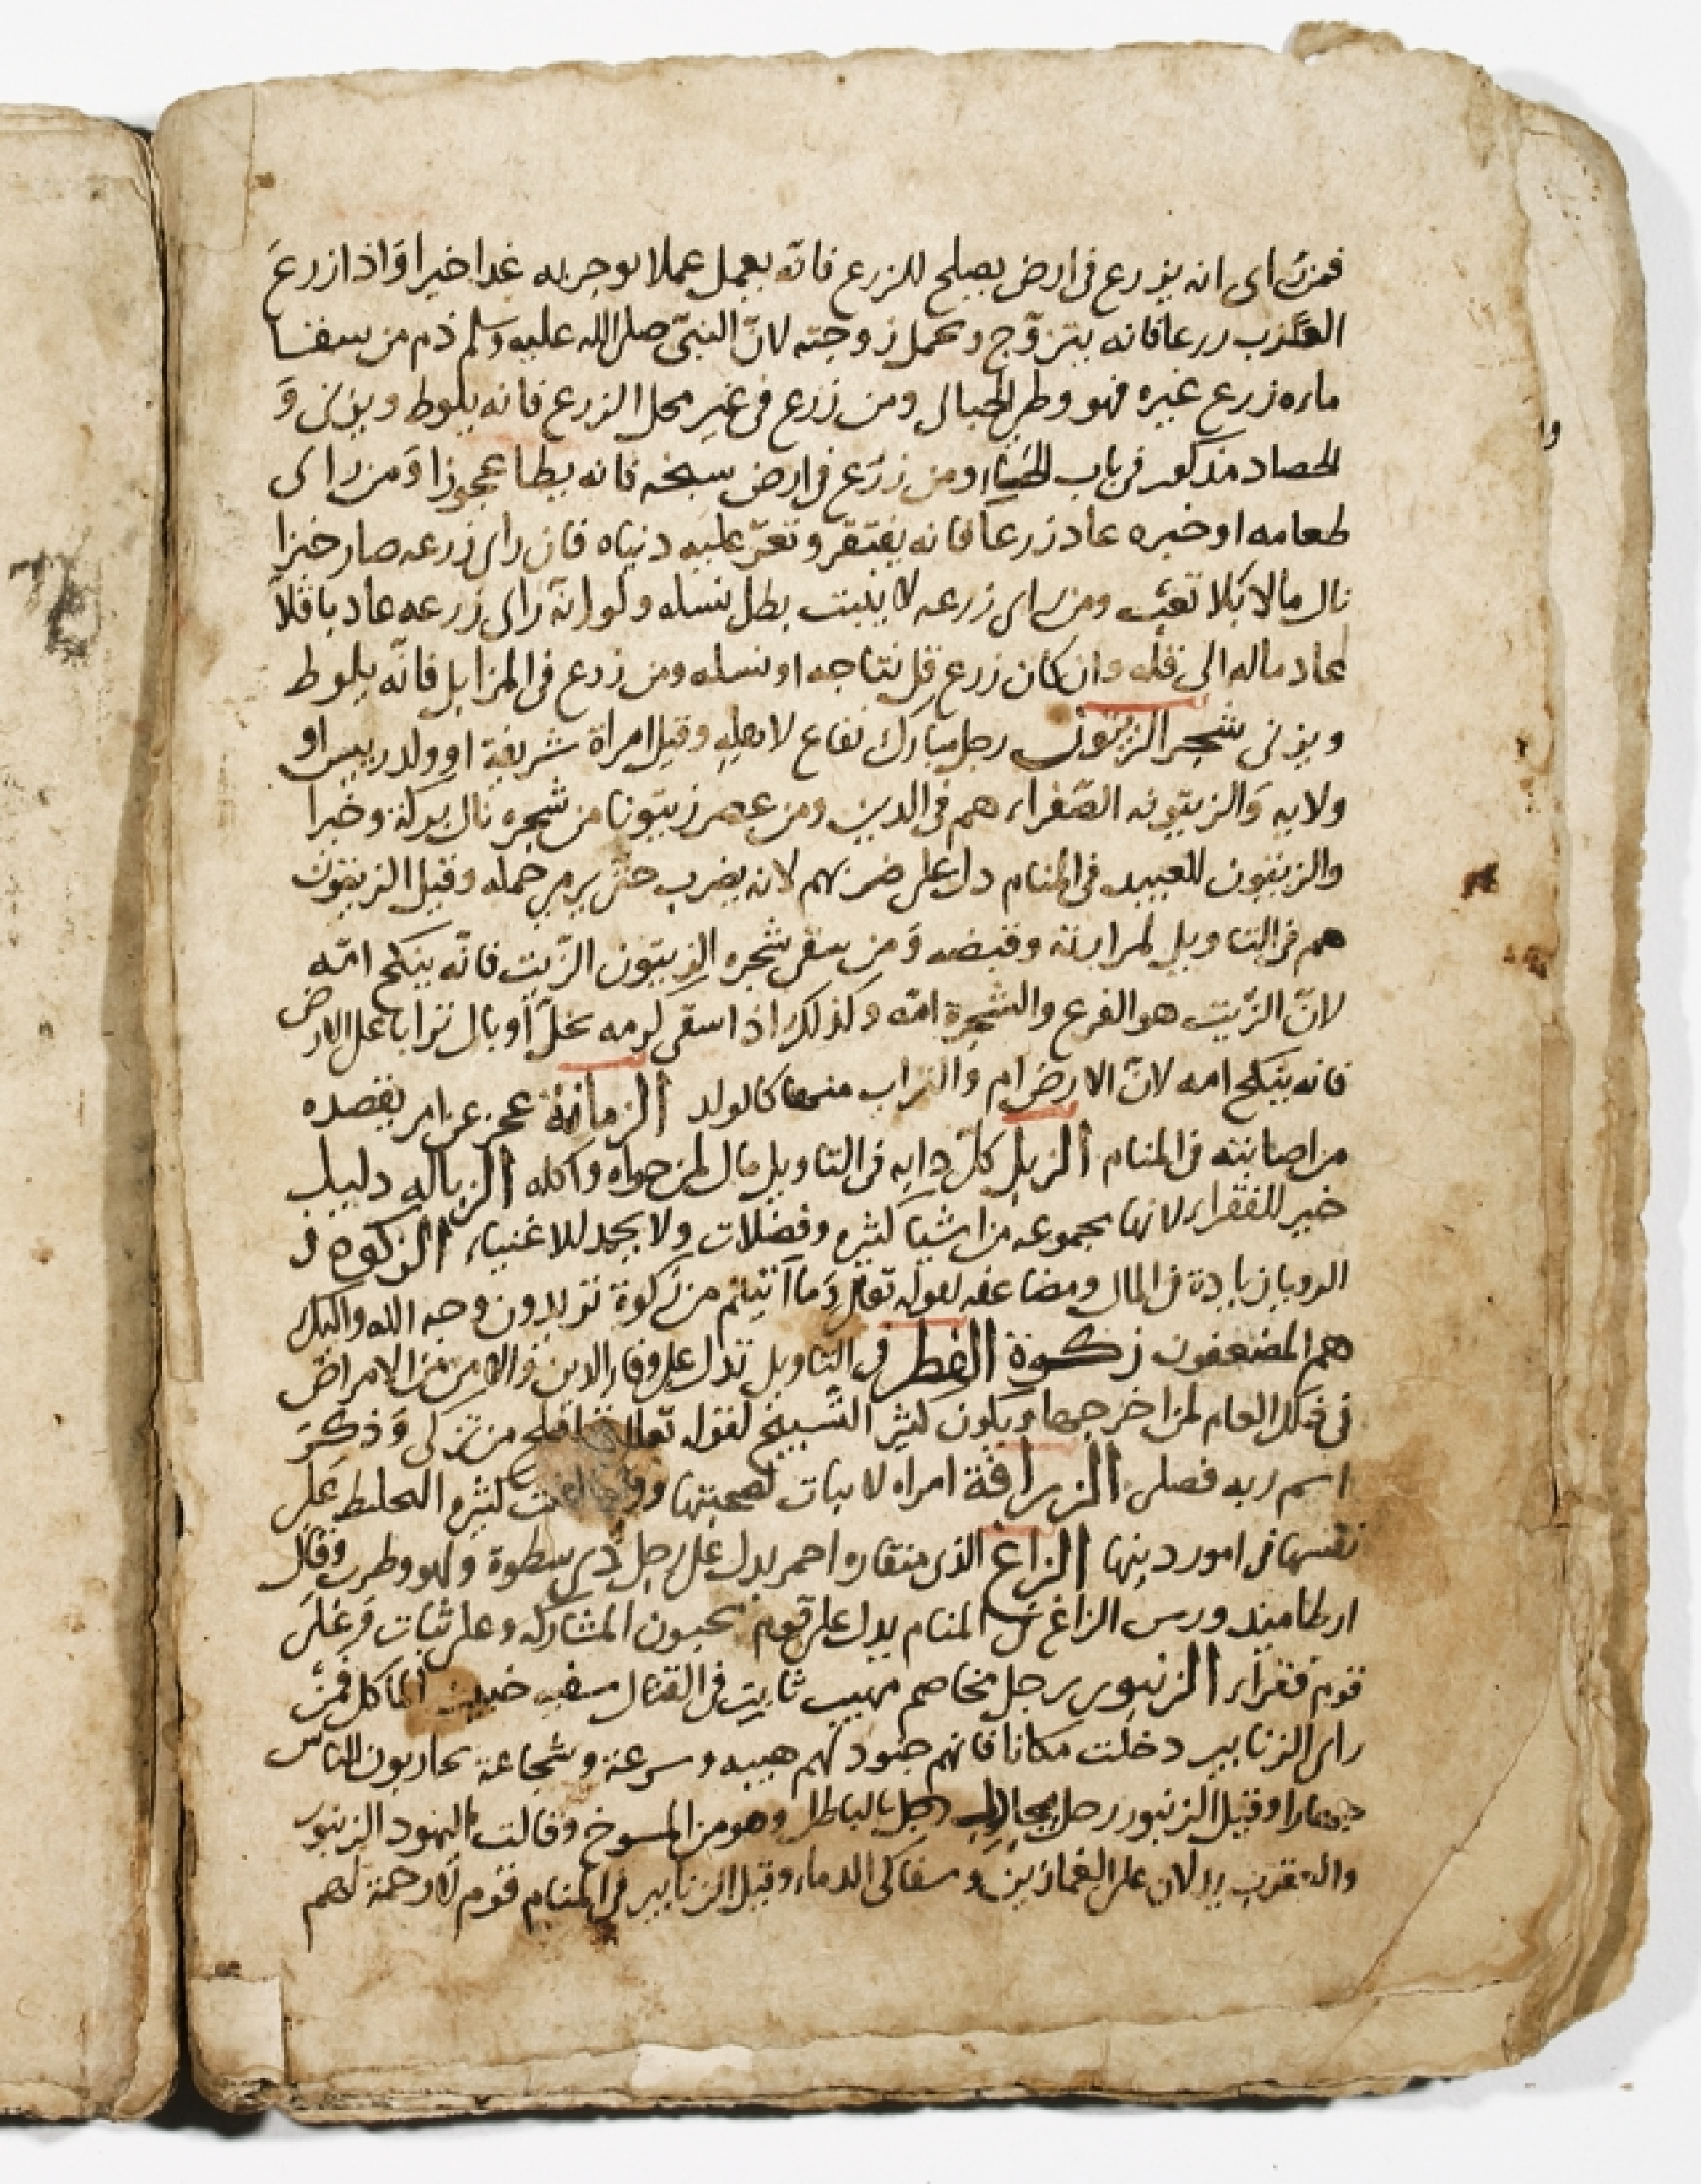 فمن راى انه يزرع فى ارض يصلح للزرع فانّه يعمل عملا يوجر به غدا خيرا وَاذا زرع
العَذب زرعا فانه يتزوّج وتحمل زوجته لانّ النبىّ صلى الله عليه وسلم ذم من سقى
ماءه زرع غيره فهو وطى الحبالى ومن زرع فى غير محل الزرع فانه يلوط ويزنى وَ
الحصاد مذكور فى باب الحاء ومن زرع فى ارض سبخه فانه يطا عجوزا وَمن راى
طعامه او خبزه عاد زرعا فانه يفتقر وتعزّ عليه دنياه فان راى زرعه صار خبزا
نال مالا بلا تعب ومن راى زرعه لا ينبت بطل نسله ولو انّه راى زرعه عاد باقلاً
لعاد ماله الى قله وان كان زرع قل نتاجه او نسله ومن زرع فى المزابل فانّه يلوط
ويزنى شجر الزيتون رجل مبارك نفاع لاهله وقيل امراة شريفة او ولد رييس او
ولايه وَالزيتونه الصّفراء هم فى الدين ومن عصر زيتونا من شجره نال بركة وخيرا
والزيتون للعبيد فى المنام دل على ضربهم لانه يضرب حتى يرمي حمله وقيل الزيتون
هم فى التاويل لمرابنه وقبضه وَمن سقى شجره الزيتون الزّيت فانّه ينكح امّه
لانّ الزّيت هو الفرع والشجرة امّه وكذلك اذا سقى كرمه خلاً او بال ترابا على الارض
فانه ينكح امه لانّ الارض ام والتراب منها كالولد الزمانة عجز عن امر يقصده
من اصابته فى المنام الزبل كلّ دابه فى التاويل مال لمن حواه واكله الزباله دليل
خير للفقراء لانها مجموعه من اشيا كثيره وفضلات ولا يحمد للاغنياء الزكوه فى
الرويا زيادة فى المال ومضاعفه لقوله تعالى وَما آتيتم من زكوة تريدون وجه الله واليك
هم المضعفون زكوة الفطر فى التاويل تدل على وفاء الدين والامن من الامراض
فى ذلك العام لمن اخرجها ويكون كثير التسبيح لقوله تعالى قد افلح من تزكى وَذكر
اسم ربه فصلى الزرافة امراه لا ثبات لصحبتها كثيرة التخليط على
نفسها فى امور دينها الزاغ الذى منقاره احمر يدل على رجل ذي سطوة ولهو وطرب وقال
ارطاميدورس الزاغ فى المنام يدل على قوم يحبون المشاركه وعلى ثبات وَعلى
قوم فقرآء الزنبور رجل مخاصم مهيب ثابت فى القتال سفيه خبيث الماكل فمن
راى الزنابير دخلت مكانا فانهم جنود لهم هيبه وسرعة وشجاعة يحاربون الناس
جهارا وقيل الزنبور رجل يجادل بالباطل وهو من المسوخ وقالت اليهود الزنبور
والعقرب يدلان على الغمازين وسفاكى الدماء وقيل الزنابير فى المنام قوم لا رحمة لهم